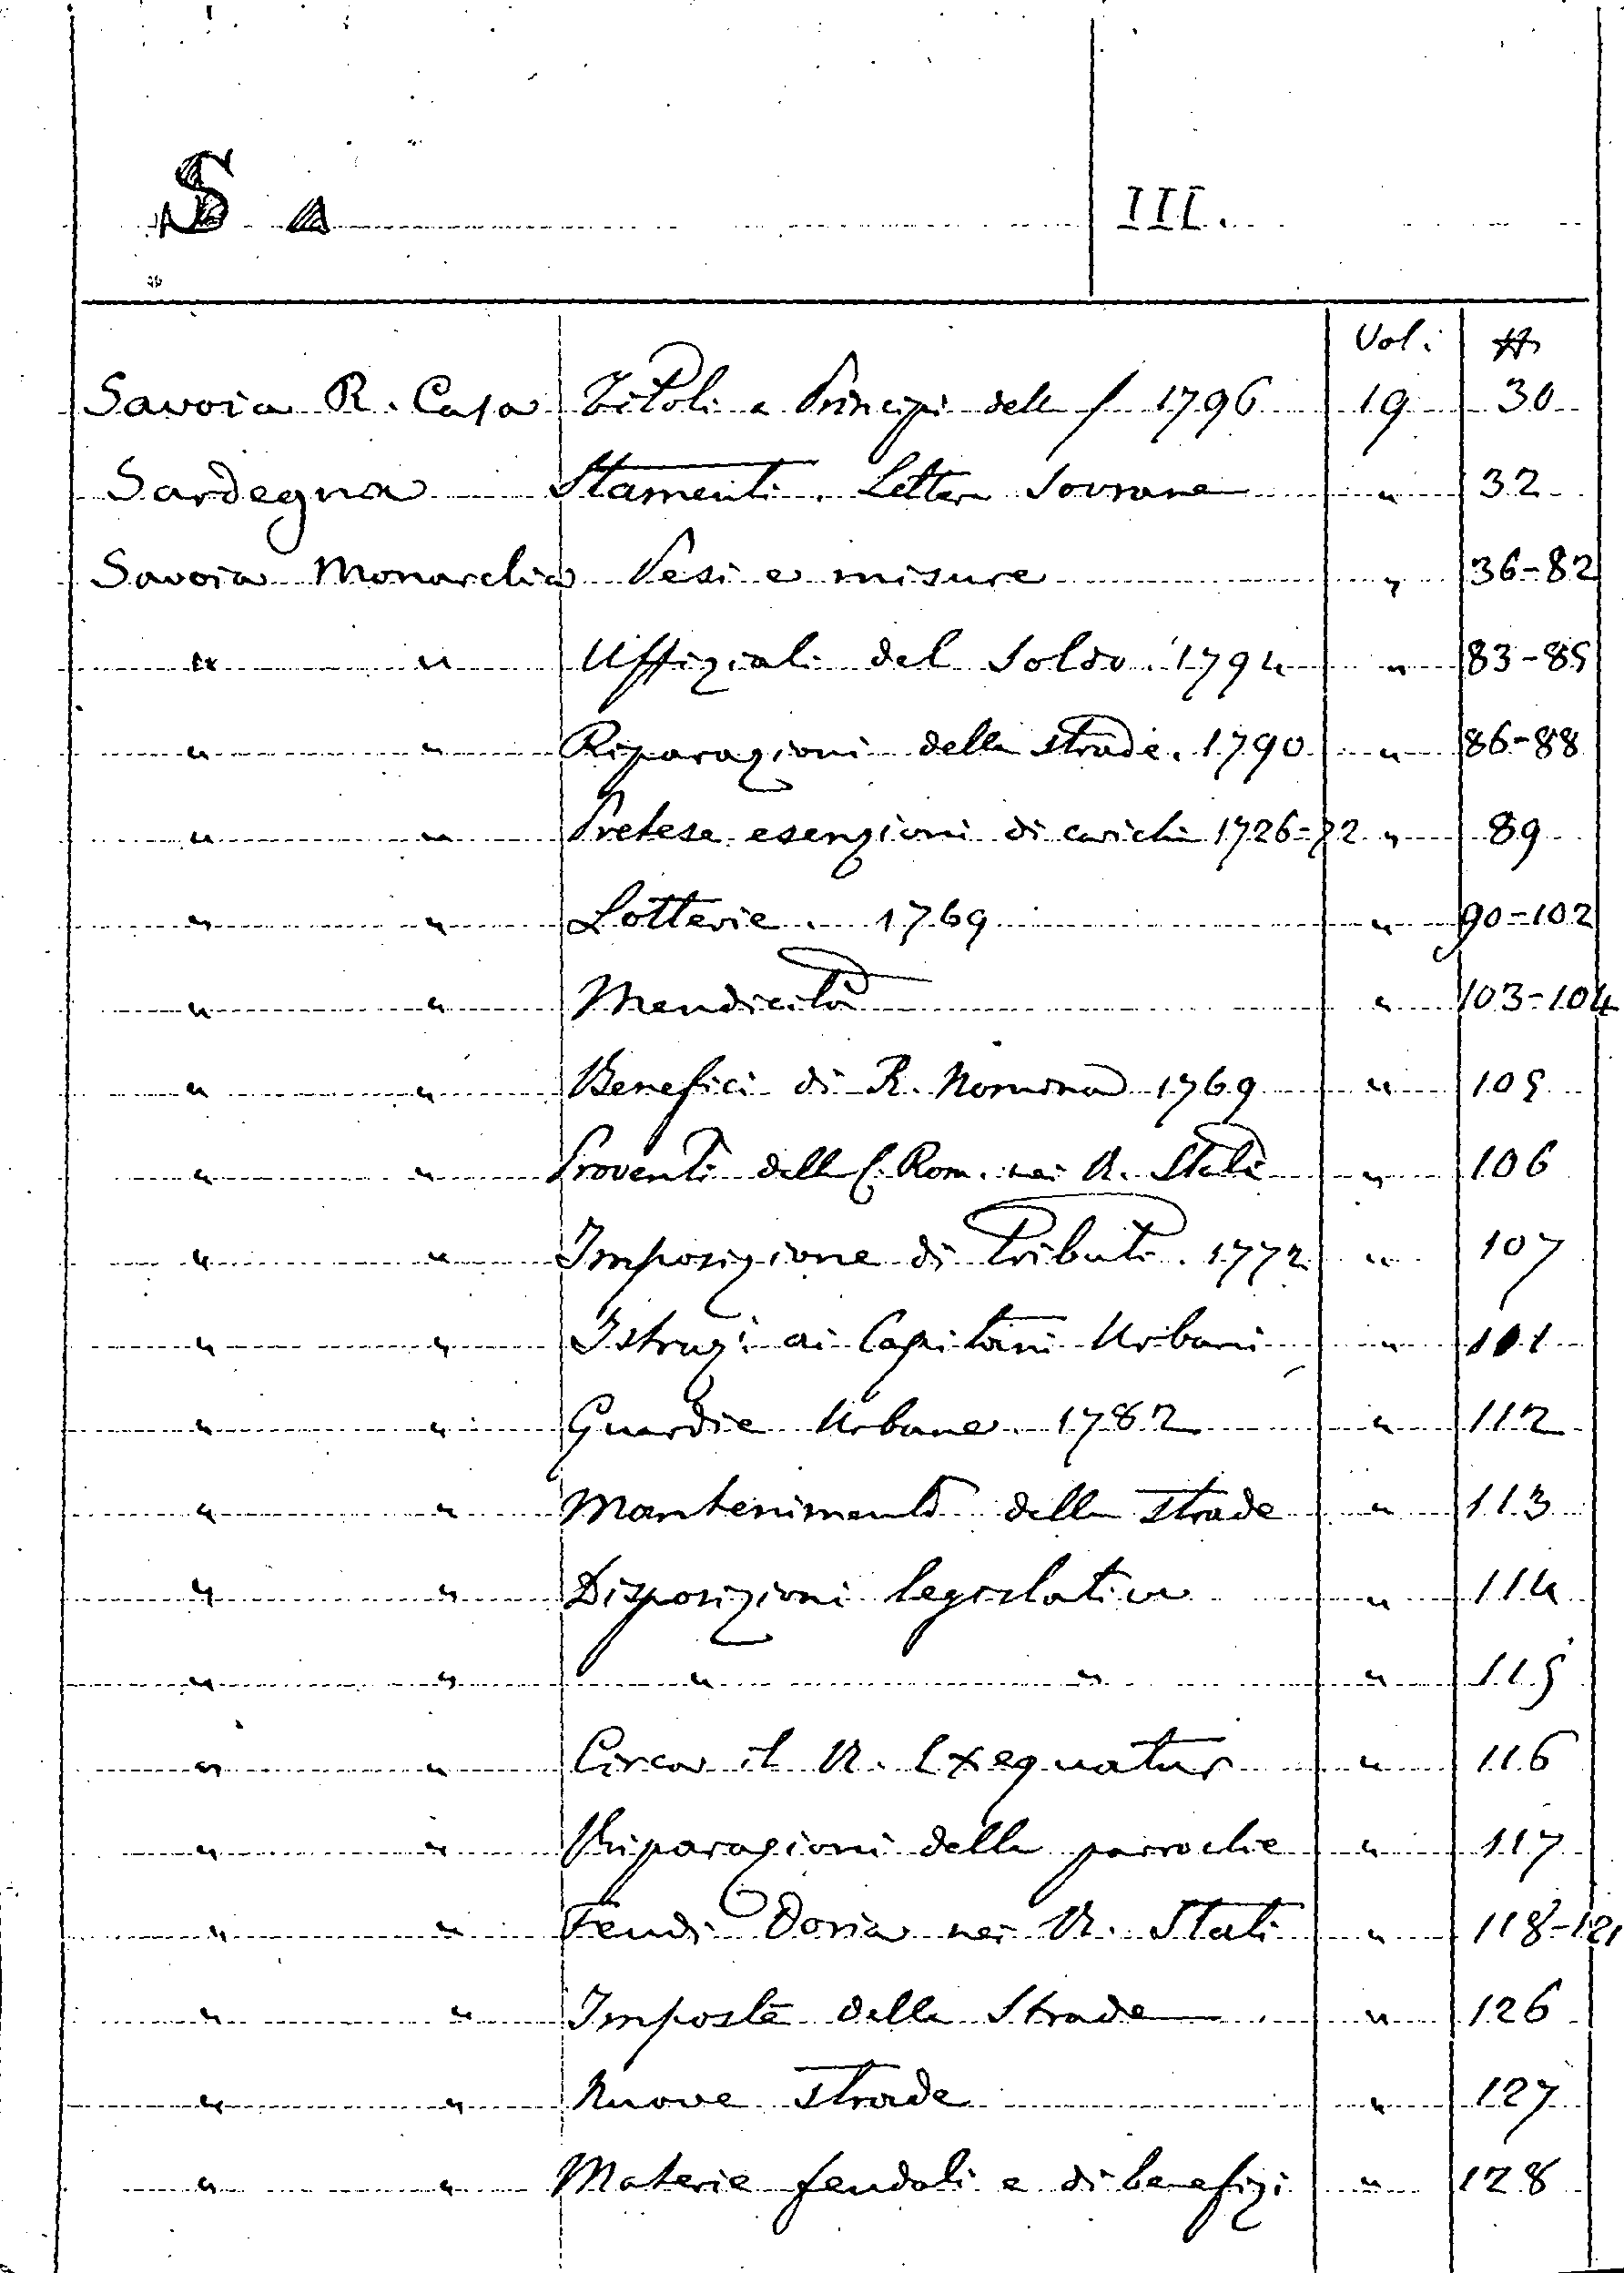 S A III.
Vol: #
Savoia R. Casa Titoli a Principi della 1796 19 30
Sardegna Stamenti. Lettere Sovrane " 32
Savoia Monarchia Pesi e misure " 36-82
" " Uffiziali del Soldo. 1794 " 83-85
" " Riparazioni delle strade. 1790 " 86-88
" " Pretese esenzioni di carichi 1726-72 " 89
" " Lotterie. 1769 " 90-102
" " Mendicità " 103-104
" " Benefici di R. Nomina 1769 " 105
" " Proventi della C. Rom. nei R. Stati " 106
" " Imposizione di Tributi. 1772 " 107
" " Istruzi ai Capitani Urbani "
" " Guardie Urbane. 1782 " 112
" " Mantenimento delle strade " 113
" " Disposizioni legislative " 114
" " " " " 115
" " Circa il R. Exequatur " 116
" " Riparazioni delle parrochie " 117
" " Feudi Doria nei R. Stati " 118-121
" " Imposte delle Strade " 126
" " Nuove Strade " 127
" " Materie feudali e di benefizi " 128